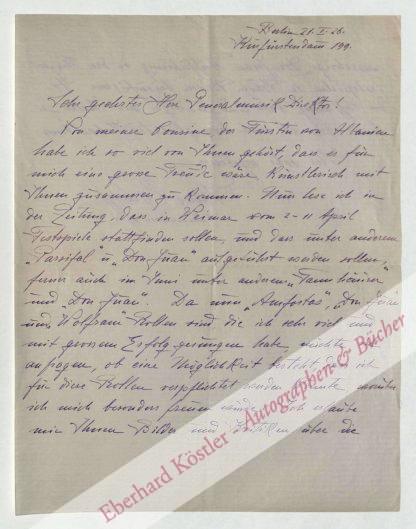 Berlin 21.I.26.
Kurfürstendam 199.
Sehr geehrter Herr Generalmusik Direktor!
Von meiner Cousine der Fürstin von Albanien
habe ich so viel von Ihnen gehört, dass es für
mich eine grosse Freude wäre künstlerisch mit
Ihnen zusammen zu kommen. Nun lese ich in
der Zeitung, dass in Weimar vom 2-11 April
Festspiele stattfinden sollen, und dass unter anderem
„Parsifal" u „Don Juan" aufgeführt werden sollen,
ferner auch im Juni unter anderem „Tannhäuser"
und „Don Juan". Da nun „Amfortas", „Don Juan"
und „Wolfram" Rollen sind die ich sehr viel und
mit grossem Erfolg gesungen habe, möchte ich
anfragen, ob eine Möglichkeit besteht dass ich
für diese Rollen verpflichtet werden könnte worüber
ich mich besonders freuen würde. Ich erlaube
mir Ihnen Bilder und Kritiken über die
Eberhard Köstler - Autographen & Bücher